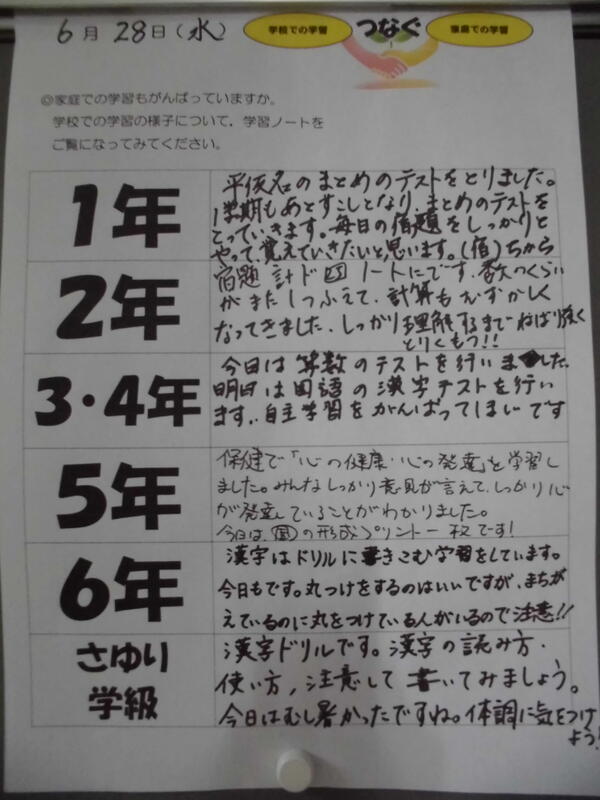 6月28日(水)
学校での学習 つなぐ 家庭での学習
◎家庭での学習もがんばっていますか。
学校での学習の様子について、学習ノートを
ご覧になってみてください。
1年
平仮名のまとめのテストをとりました。
1学期もあとすこしとなり、まとめのテストを
とっていきます。毎日の宿題をしっかりと
やって、覚えていきたいと思います。(宿)ちから
2年
宿題 計ド 図 ノートにです。数のくらい
がまた1つふえて、計算もむずかしく
なってきました。しっかり理解するまでねばり強く
とりくもう!!
3・4年
今日は算数のテストを行いました。
明日は国語の漢字テストを行い
ます。自主学習をがんばってほしいです
5年
保健で「心の健康・心の発達」を学習し
ました。みんなしっかり意見が言えて、しっかり心
が発達していることがわかりました。
今日は、国の形成プリント一枚です!
6年
漢字はドリルに書きこむ学習をしています。
今日もです。丸つけをするのはいいですが、まちが
えているのに丸をつけている人がいるので注意!!
さゆり
学級
漢字ドリルです。漢字の読み方・
使い方、注意して書いてみましょう。
今日はむし暑かったですね。体調に気をつけ
よう!